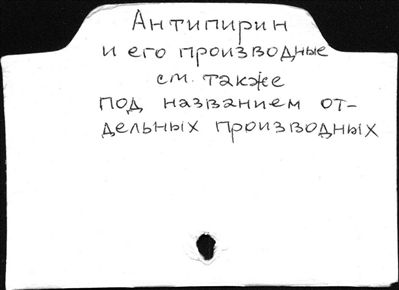 Антипирин
и его производные
см. также
под названием от-
дельных производных